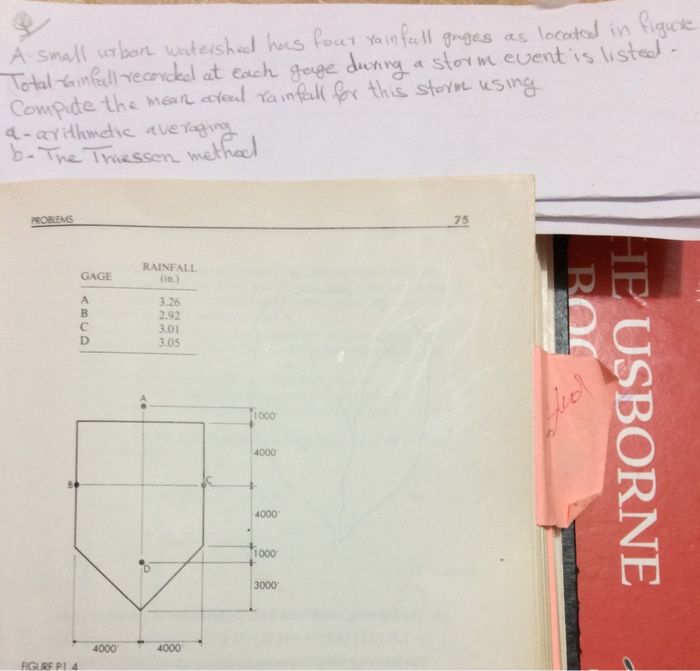 A small urban watershed has four rainfall gages as located in figure
Total rainfall recorded at each gage during a storm event is listed.
Compute the mean areal rainfall for this storm using
a- arithmetic averaging
b- The Thiessen method
PROBLEMS 75
GAGE RAINFALL (in.)
A 3.26
B 2.92
C 3.01
D 3.05
A
1000'
4000'
B
C
4000'
1000'
D
3000'
4000' 4000'
FIGURE P1.4
HE USBORNE
BOO